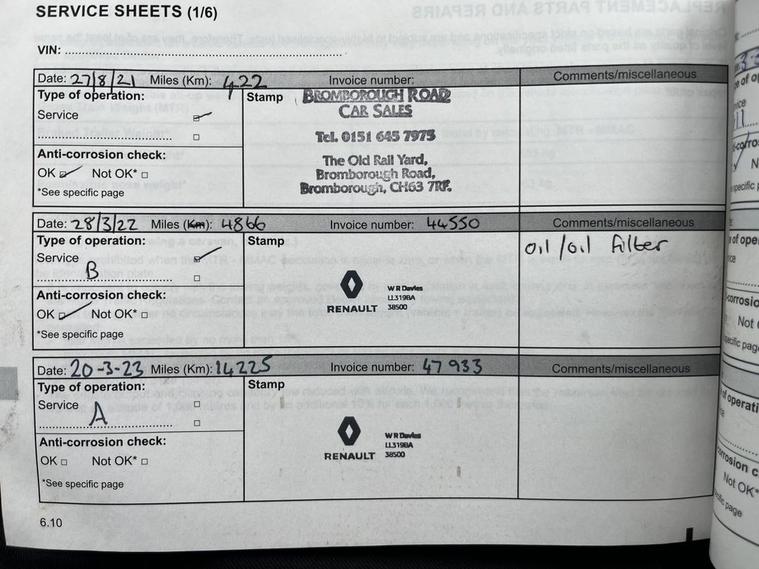 SERVICE SHEETS (1/6)
VIN:
Date: 27/8/21 Miles (Km): 422 Invoice number: Comments/miscellaneous
Type of operation:
Service
Stamp
BROMBOROUGH ROAD
CAR SALES
Tel. 0151 645 7975
The Old Rail Yard,
Bromborough Road,
Bromborough, CH63 7RF.
Anti-corrosion check:
OK Not OK*
*See specific page
Date: 28/3/22 Miles (Km): 4866 Invoice number: 44550 Comments/miscellaneous
Type of operation:
Service
B
Stamp
oil/oil filter
RENAULT
W R Davies
LL319BA
38500
Anti-corrosion check:
OK Not OK*
*See specific page
Date: 20-3-23 Miles (Km): 14225 Invoice number: 47933 Comments/miscellaneous
Type of operation:
Service
A
Stamp
RENAULT
W R Davies
LL319BA
38500
Anti-corrosion check:
OK Not OK*
*See specific page
6.10